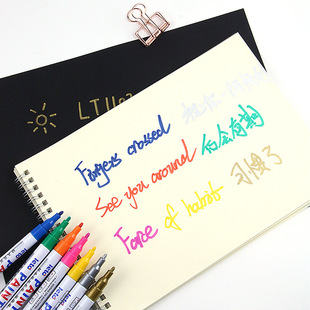 Fingers crossed 祝你
See you around 后会有期
Force of habit 习惯了
PAINT
PAINT